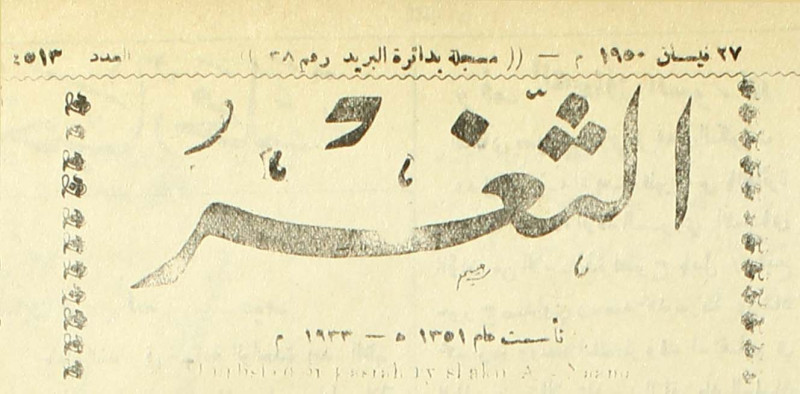 ٢٧ نيسان ١٩٥٠ م — (( مسجلة بدائرة البريد رقم ٣٨ )) العدد ٤٥١٣
الثغر
تأسست عام ١٣٥١ ه — ١٩٣٣ م